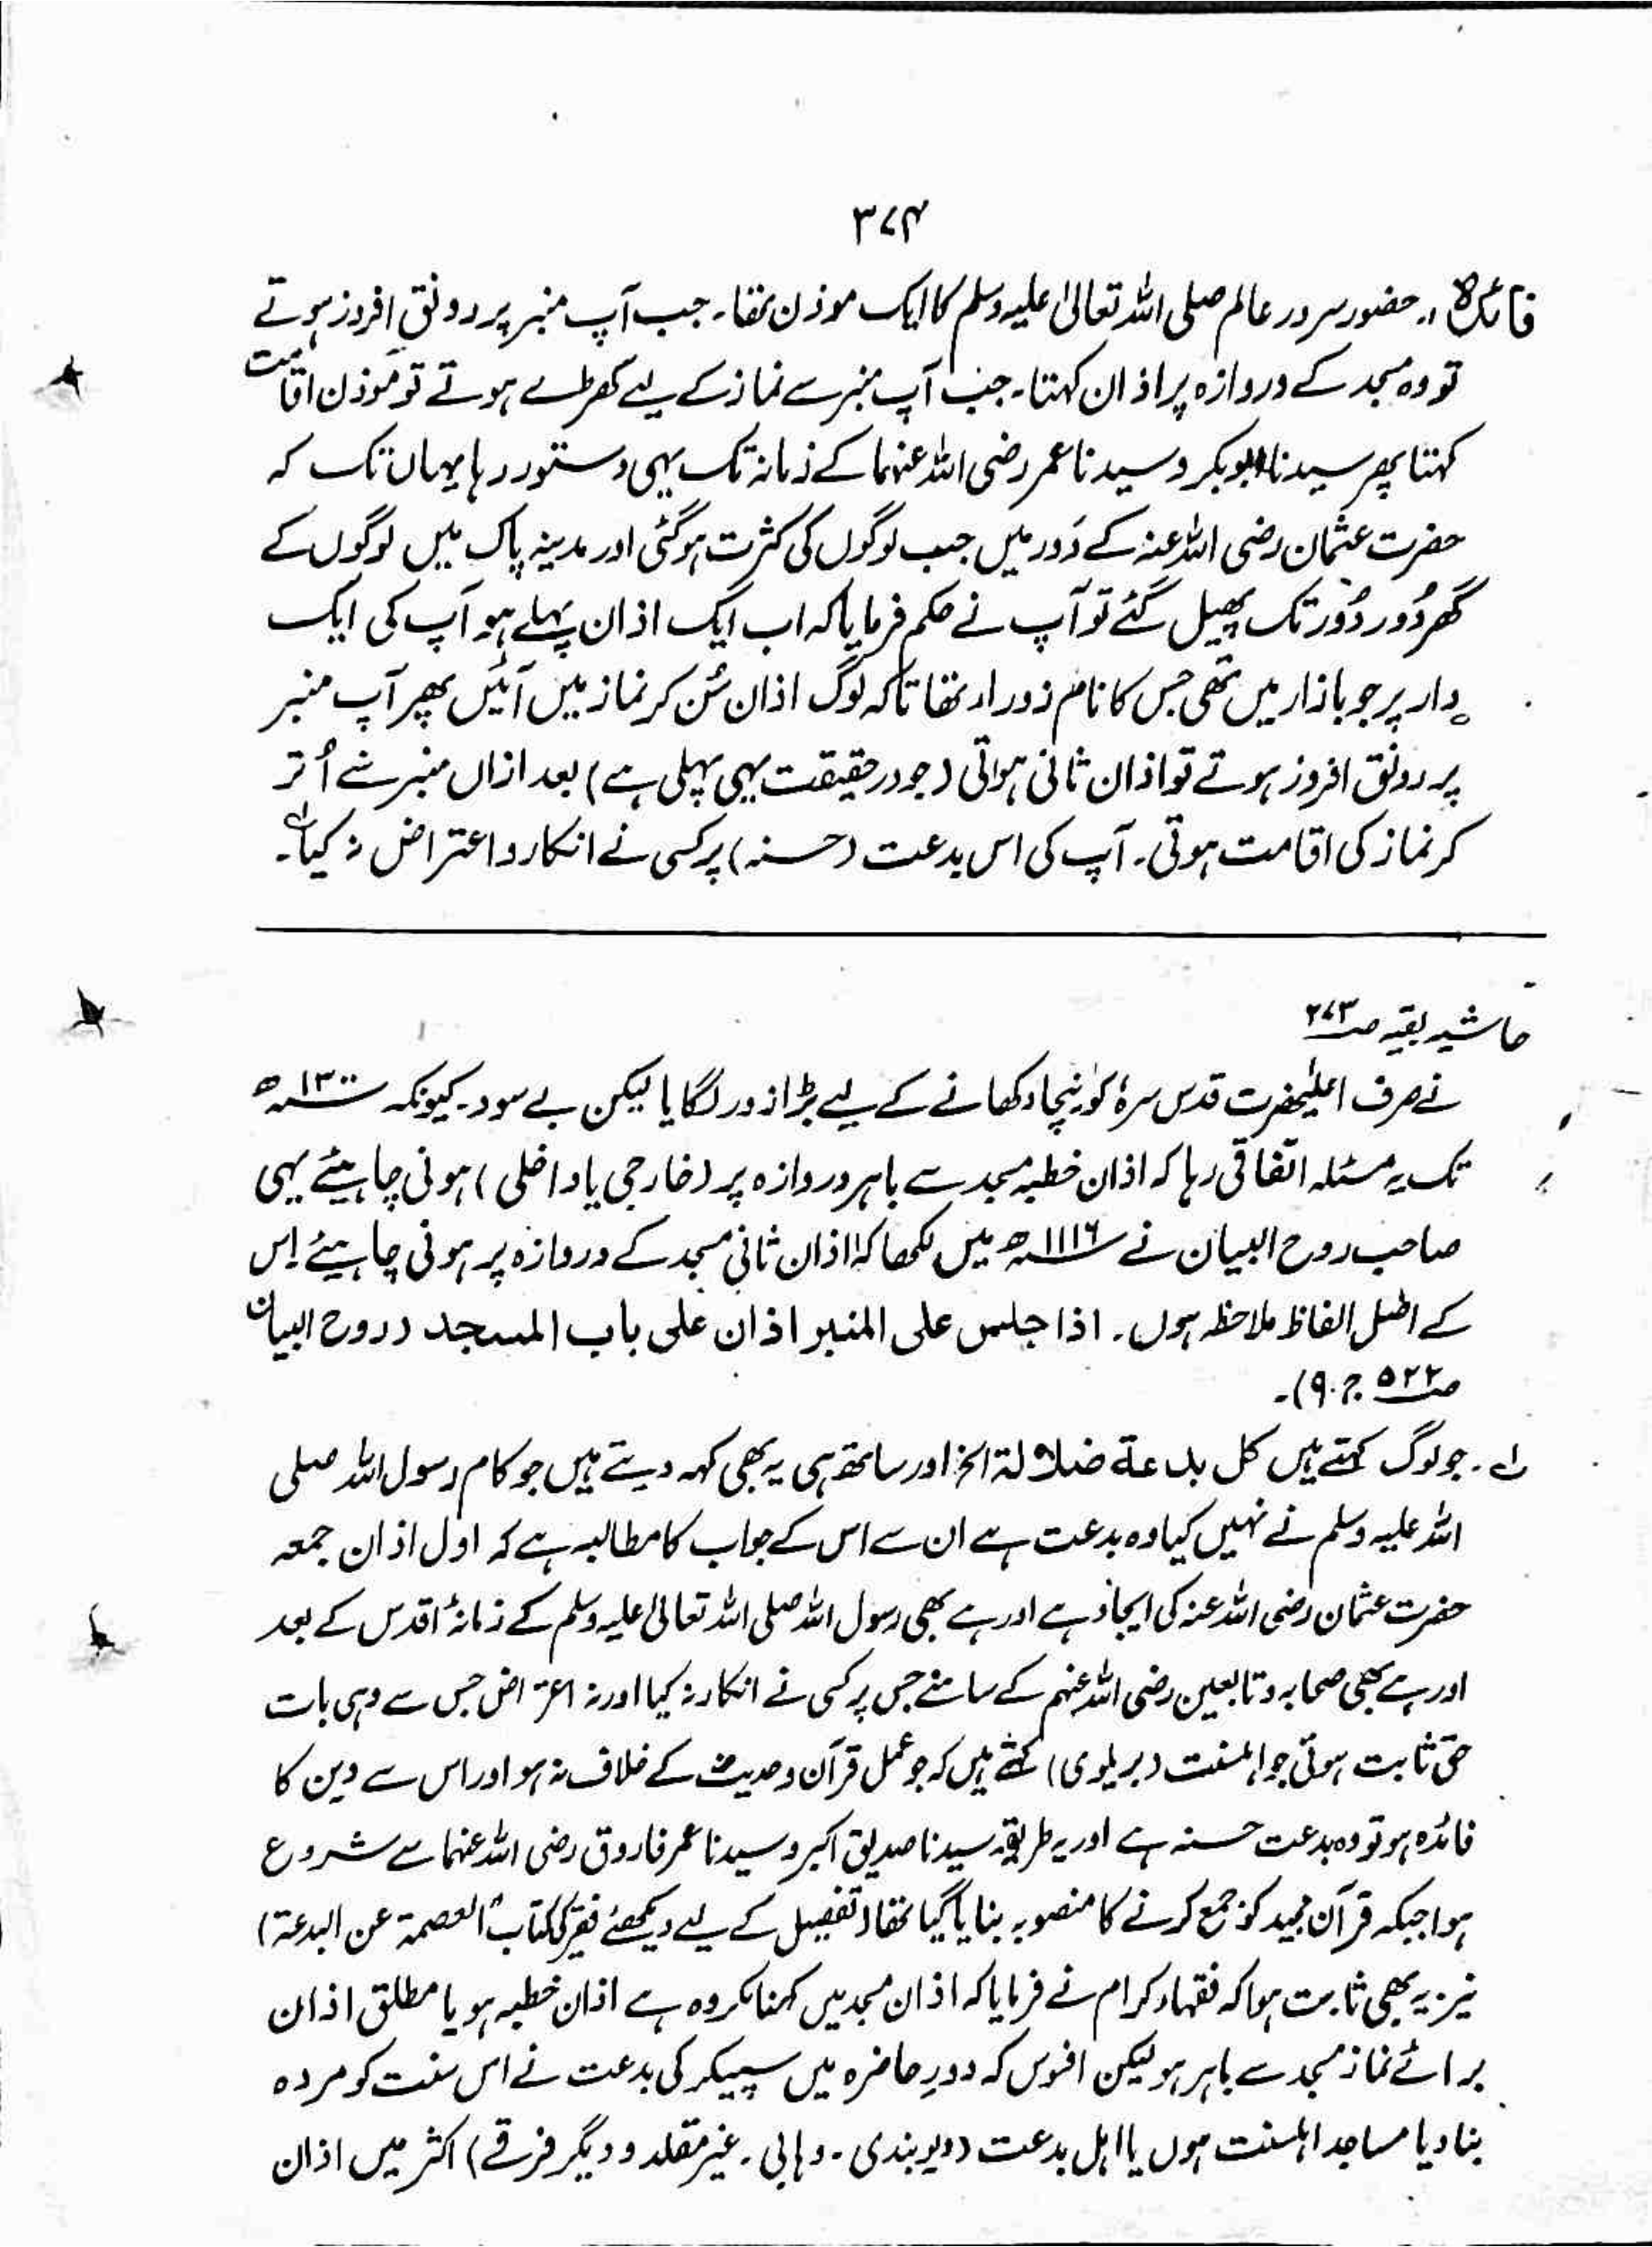 ۳۷۴
فائدہ :۔ حضور سرور عالم صلی اللہ تعالیٰ علیہ وسلم کا ایک موذن تھا۔ جب آپ منبر پر رونق افروز ہوتے
تو وہ مسجد کے دروازہ پر اذان کہتا۔ جب آپ منبر سے نماز کے لیے کھڑے ہوتے تو مؤذن اقامت
کہتا پھر سیدنا ابوبکر و سیدنا عمر رضی اللہ عنہما کے زمانہ تک یہی دستور رہا یہاں تک کہ
حضرت عثمان رضی اللہ عنہ کے دَور میں جب لوگوں کی کثرت ہوگئی اور مدینہ پاک میں لوگوں کے
گھر دُور دُور تک پھیل گئے تو آپ نے حکم فرمایا کہ اب ایک اذان پہلے ہو آپ کی ایک
دار پر جو بازار میں تھی جس کا نام زوراء تھا تاکہ لوگ اذان سُن کر نماز میں آئیں پھر آپ منبر
پر رونق افروز ہوتے تو اذان ثانی ہوتی (جو درحقیقت یہی پہلی ہے) بعد ازاں منبر سے اُتر
کر نماز کی اقامت ہوتی۔ آپ کی اس بدعت (حسنہ) پر کسی نے انکار و اعتراض نہ کیا۔ ؎۱
حاشیہ بقیہ صـ ۲۷۳
نے صرف اعلیٰحضرت قدس سرہٗ کو نیچا دکھانے کے لیے بڑا زور لگایا لیکن بے سود۔ کیونکہ ۱۳۰۰ھ
تک یہ مسئلہ اتفاقی رہا کہ اذان خطبہ مسجد سے باہر دروازہ پر (خارجی یا داخلی) ہونی چاہیئے یہی
صاحب روح البیان نے ۱۱۱۶ھ میں لکھا کہ اذان ثانی مسجد کے دروازہ پر ہونی چاہیئے اس
کے اصل الفاظ ملاحظہ ہوں۔ اذا جلس علی المنبر اذان علی باب المسجد (روح البیان
صـ ۵۲۲ ج ۹)۔
؎۱۔ جو لوگ کہتے ہیں کل بدعة ضلالة الخ اور ساتھ ہی یہ بھی کہہ دیتے ہیں جو کام رسول اللہ صلی
اللہ علیہ وسلم نے نہیں کیا وہ بدعت ہے ان سے اس کے جواب کا مطالبہ ہے کہ اول اذان جمعہ
حضرت عثمان رضی اللہ عنہ کی ایجاد ہے اور ہے بھی رسول اللہ صلی اللہ تعالیٰ علیہ وسلم کے زمانۂ اقدس کے بعد
اور ہے بھی صحابہ و تابعین رضی اللہ عنہم کے سامنے جس پر کسی نے انکار نہ کیا اور نہ اعتراض جس سے وہی بات
حق ثابت ہوئی جو اہلسنت (بریلوی) کہتے ہیں کہ جو عمل قرآن و حدیث کے خلاف نہ ہو اور اس سے دین کا
فائدہ ہو تو وہ بدعت حسنہ ہے اور یہ طریقہ سیدنا صدیق اکبر و سیدنا عمر فاروق رضی اللہ عنہما سے شروع
ہوا جبکہ قرآن مجید کو جمع کرنے کا منصوبہ بنایا گیا تھا (تفصیل کے لیے دیکھئے فقیر کی کتاب "العصمة عن البدعة)
نیز یہ بھی ثابت ہوا کہ فقہاء کرام نے فرمایا کہ اذان مسجد میں کہنا مکروہ ہے اذان خطبہ ہو یا مطلق اذان
برائے نماز مسجد سے باہر ہو لیکن افسوس کہ دورِ حاضرہ میں سپیکر کی بدعت نے اس سنت کو مردہ
بنا دیا مساجد اہلسنت ہوں یا اہل بدعت (دیوبندی۔ وہابی۔ غیر مقلد و دیگر فرقے) اکثر میں اذان